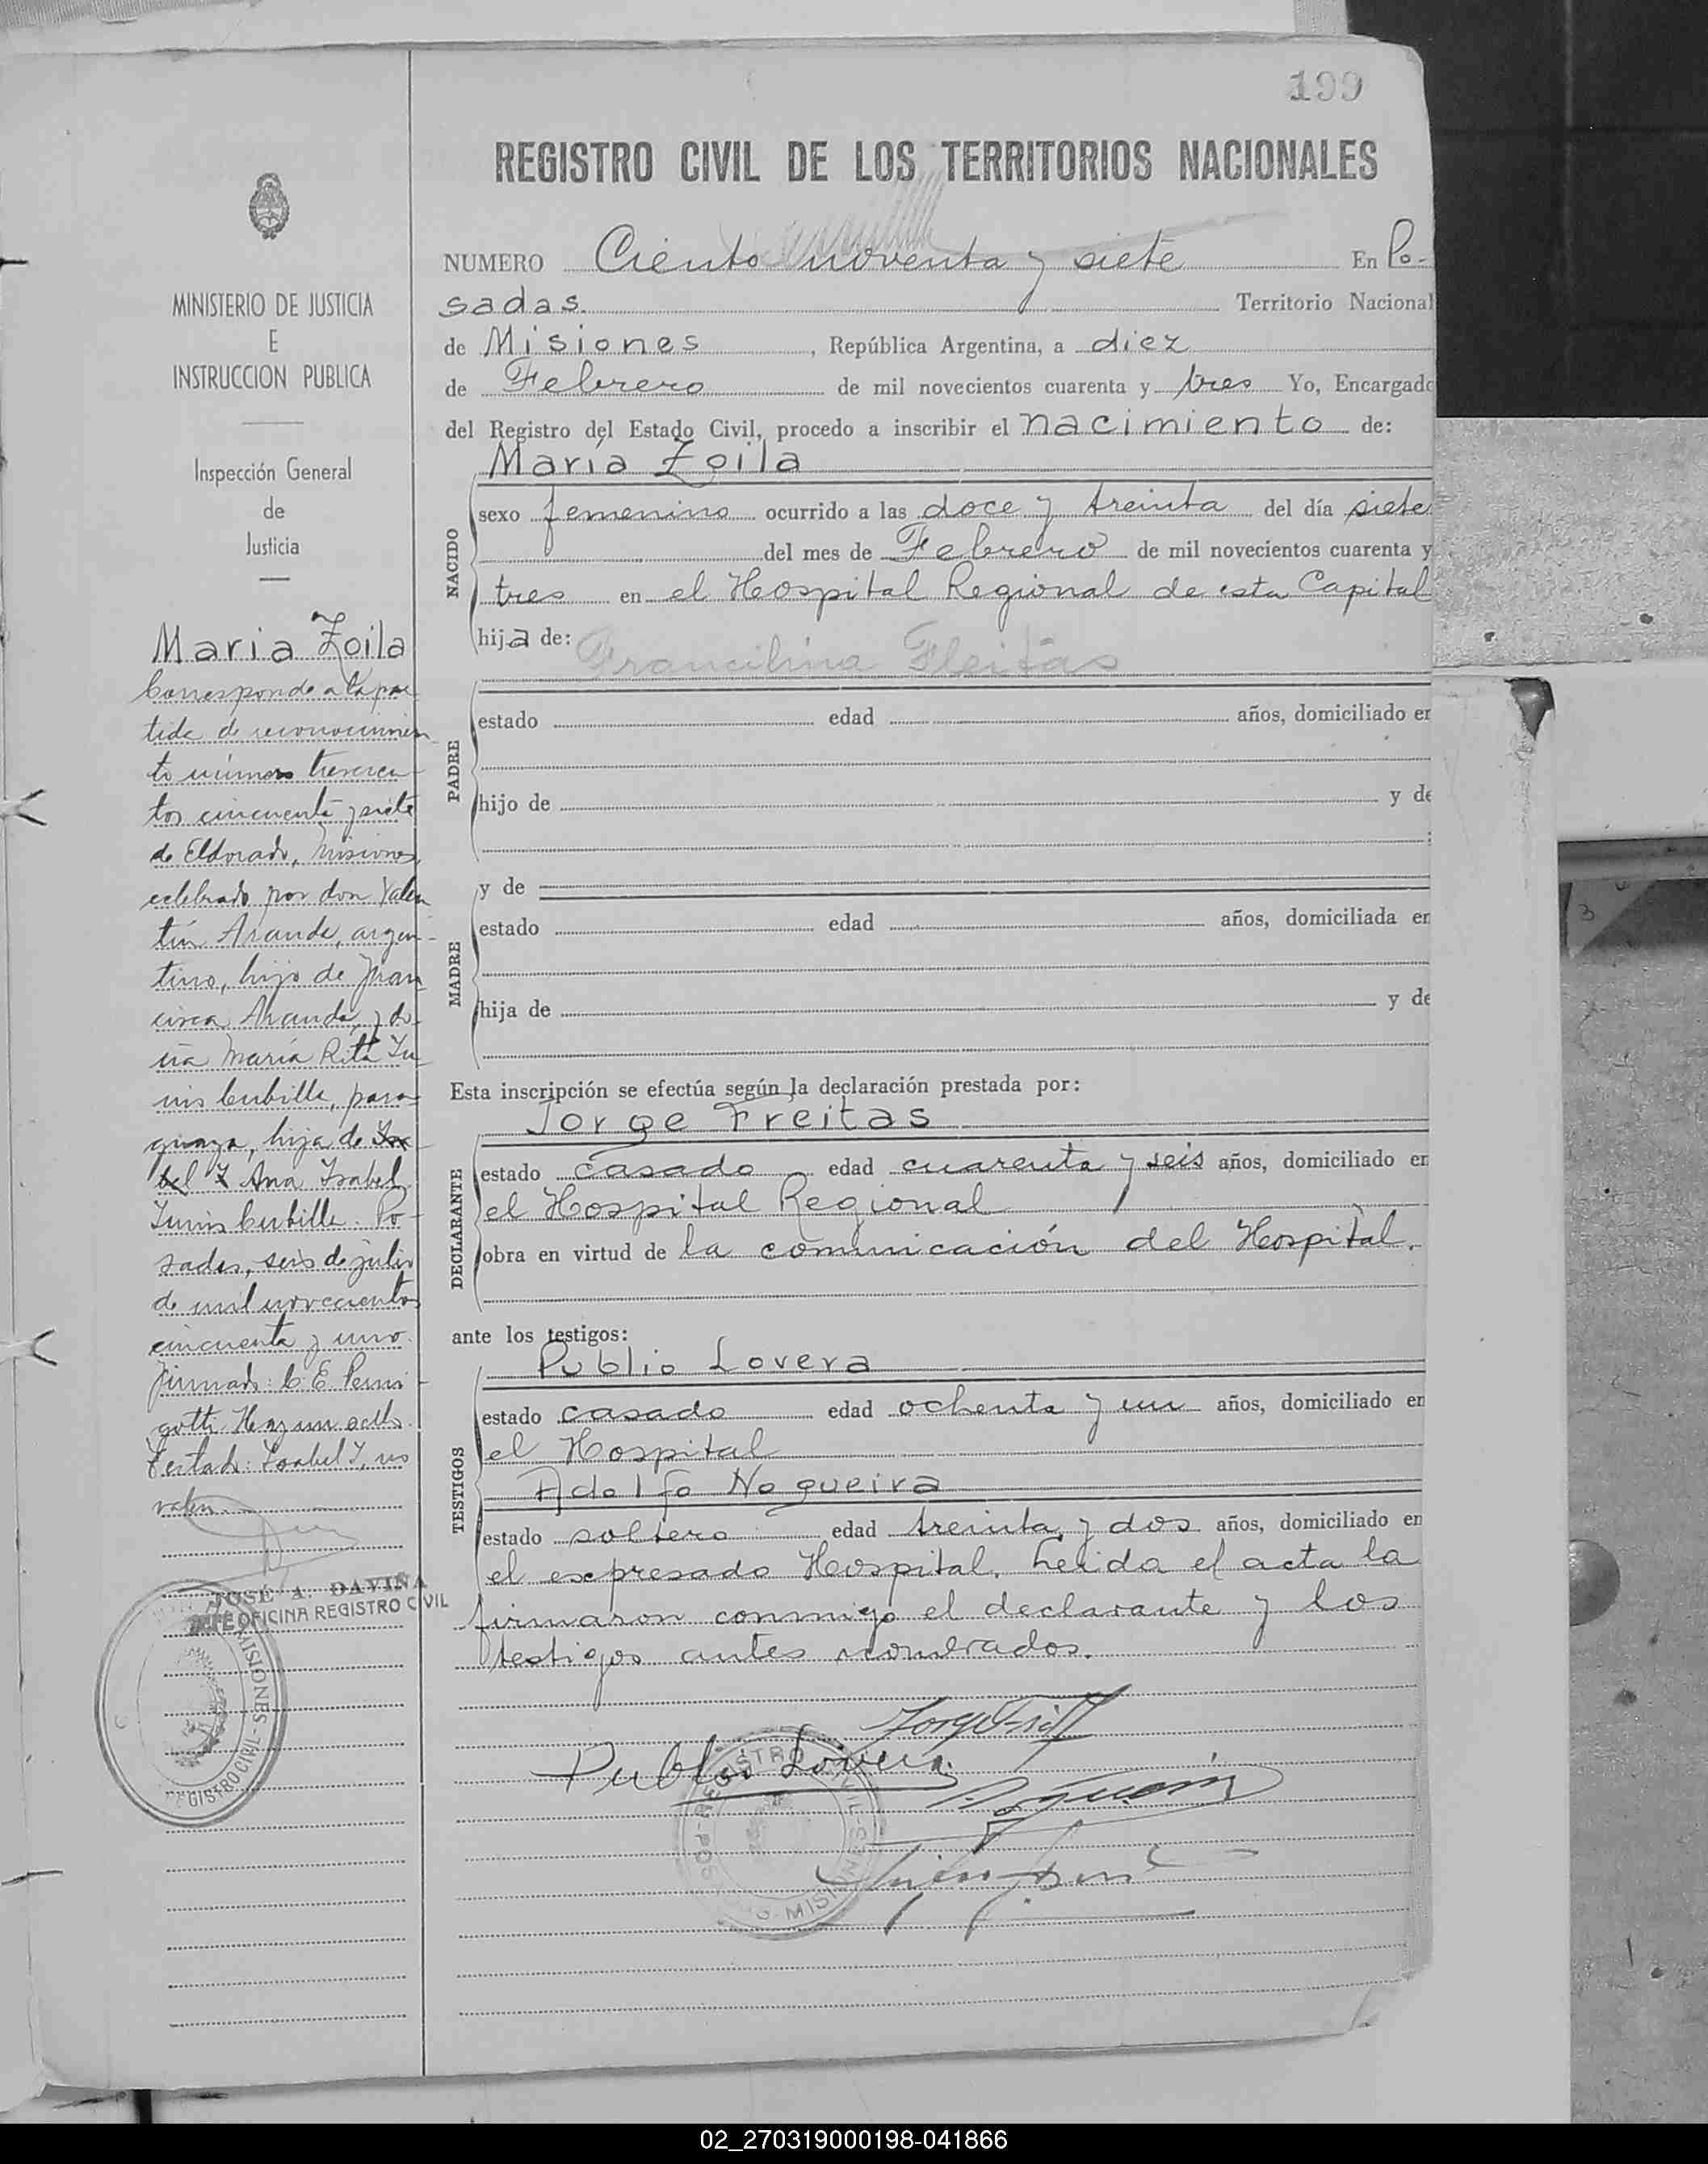 199
REGISTRO CIVIL DE LOS TERRITORIOS NACIONALES
NUMERO Ciento noventa y siete En Po-
sadas. Territorio Nacional
de Misiones, República Argentina, a diez
de Febrero de mil novecientos cuarenta y tres Yo, Encargado
del Registro del Estado Civil, procedo a inscribir el nacimiento de:
María Zoila
NACIDO
sexo femenino ocurrido a las doce y treinta del día siete
del mes de Febrero de mil novecientos cuarenta y
tres en el Hospital Regional de esta Capital
hija de: Francilina Fleitas
PADRE
estado edad años, domiciliado en
hijo de y de
y de
MADRE
estado edad años, domiciliada en
hija de y de
Esta inscripción se efectúa según la declaración prestada por:
Jorge Freitas
DECLARANTE
estado casado edad cuarenta y seis años, domiciliado en
el Hospital Regional
obra en virtud de la comunicación del Hospital.
ante los testigos:
Publio Lovera
TESTIGOS
estado casado edad ochenta y un años, domiciliado en
el Hospital
Adolfo Nogueira
estado soltero edad treinta y dos años, domiciliado en
el expresado Hospital. Leida el acta la
firmaron conmigo el declarante y los
testigos antes nombrados.
Publio Lovera
MINISTERIO DE JUSTICIA
E
INSTRUCCION PUBLICA
Inspección General
de
Justicia
Maria Zoila
Corresponde a la par
tida de reconocimien
to número trescien
tos cincuenta y siete
de Eldorado, Misiones,
celebrado por don Valen
tín Aranda, argen-
tino, hijo de Fran
cisca Aranda, y do-
ña María Rita
Cubilla, para-
guaya, hija de
Ana Isabel
Cubilla. Po
sadas, seis de julio
de mil novecientos
cincuenta y uno.
Firmado: C. E. Perni
gotti. Hay un sello.
Testado: Isabel Y, no
valen
JOSÉ A. DAVIÑA
JEFE OFICINA REGISTRO CIVIL
MISIONES - REGISTRO CIVIL
02_270319000198-041866